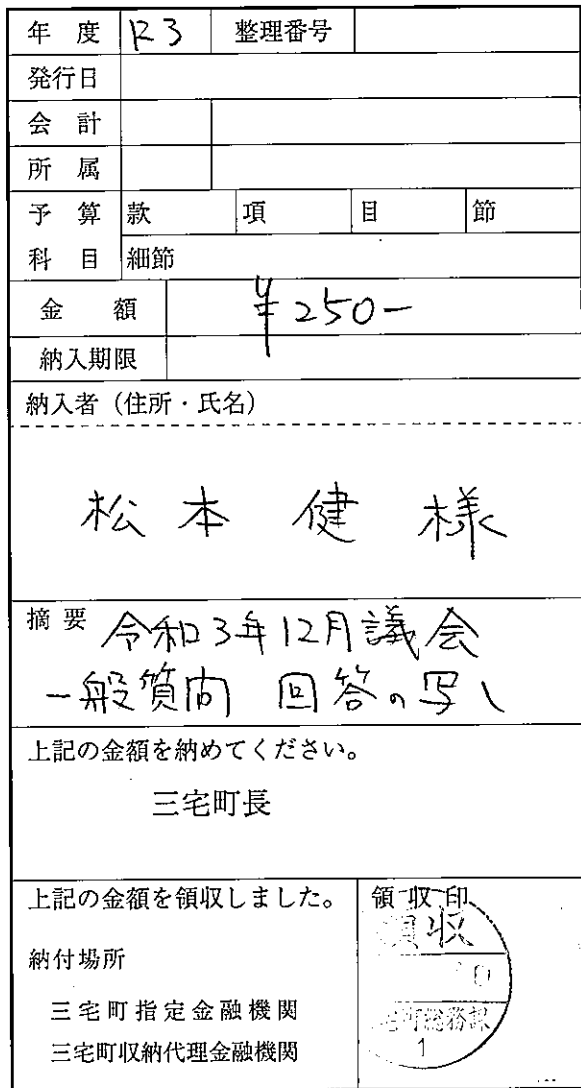 年 度 R3 整理番号
発行日
会 計
所 属
予 算 款 項 目 節
科 目 細節
金 額 ¥250-
納入期限
納入者(住所・氏名)
松本 健 様
摘要 令和3年12月議会
一般質問 回答の写し
上記の金額を納めてください。
三宅町長
上記の金額を領収しました。
領収印
領収
宅町総務課
1
納付場所
三宅町指定金融機関
三宅町収納代理金融機関